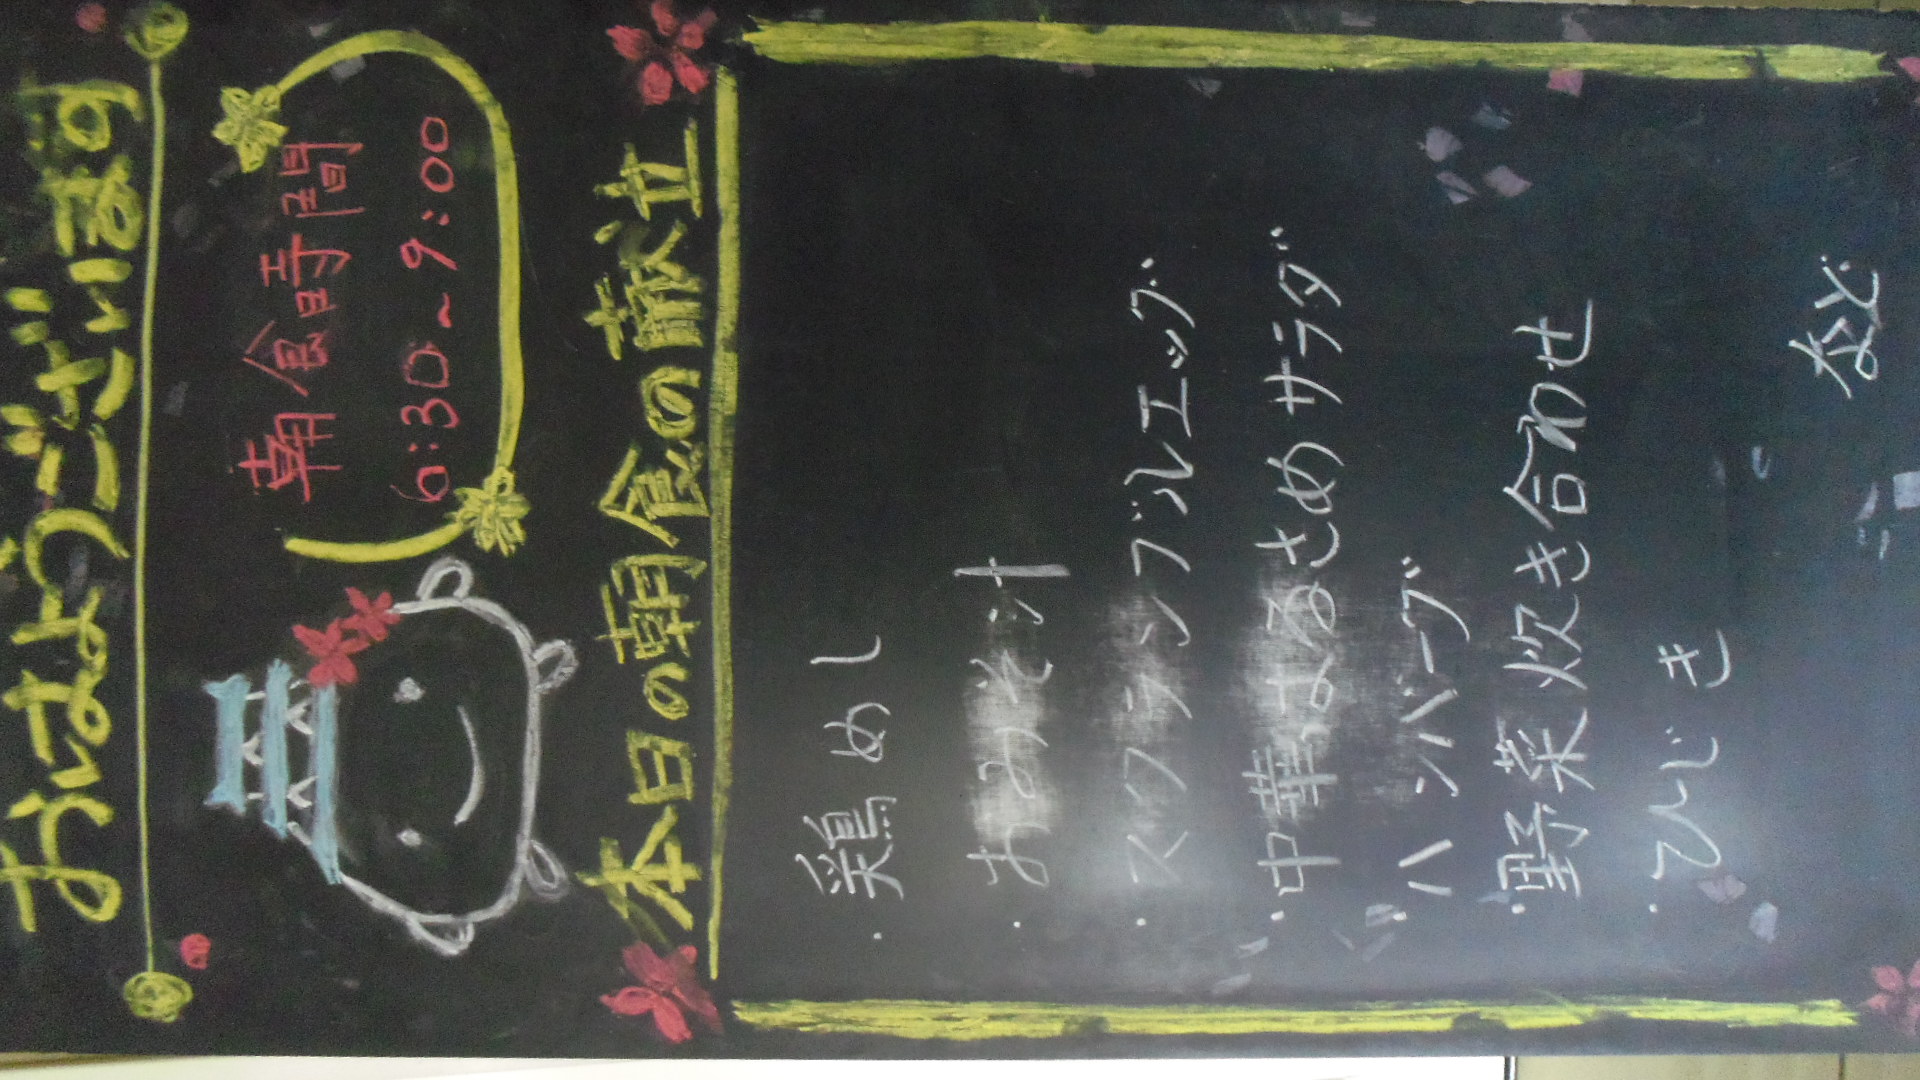 おはようございます
朝食時間
6:30~9:00
本日の朝食の献立
・鶏めし
・おみそ汁
・スクランブルエッグ
・中華はるさめサラダ
・ハンバーグ
・野菜炊き合わせ
・ひじき
など